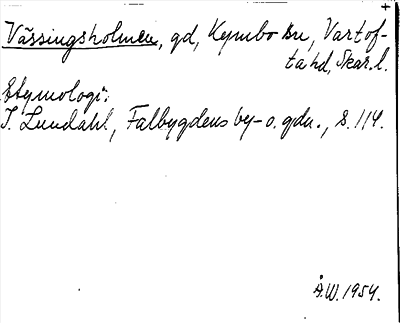 Vässingsholmen, gd, Kymbo sn, Vartof-
ta hd, Skar.l.
Etymologi:
I. Lundahl, Falbygdens by- o. gdn., s. 114.
Å.W. 1954.